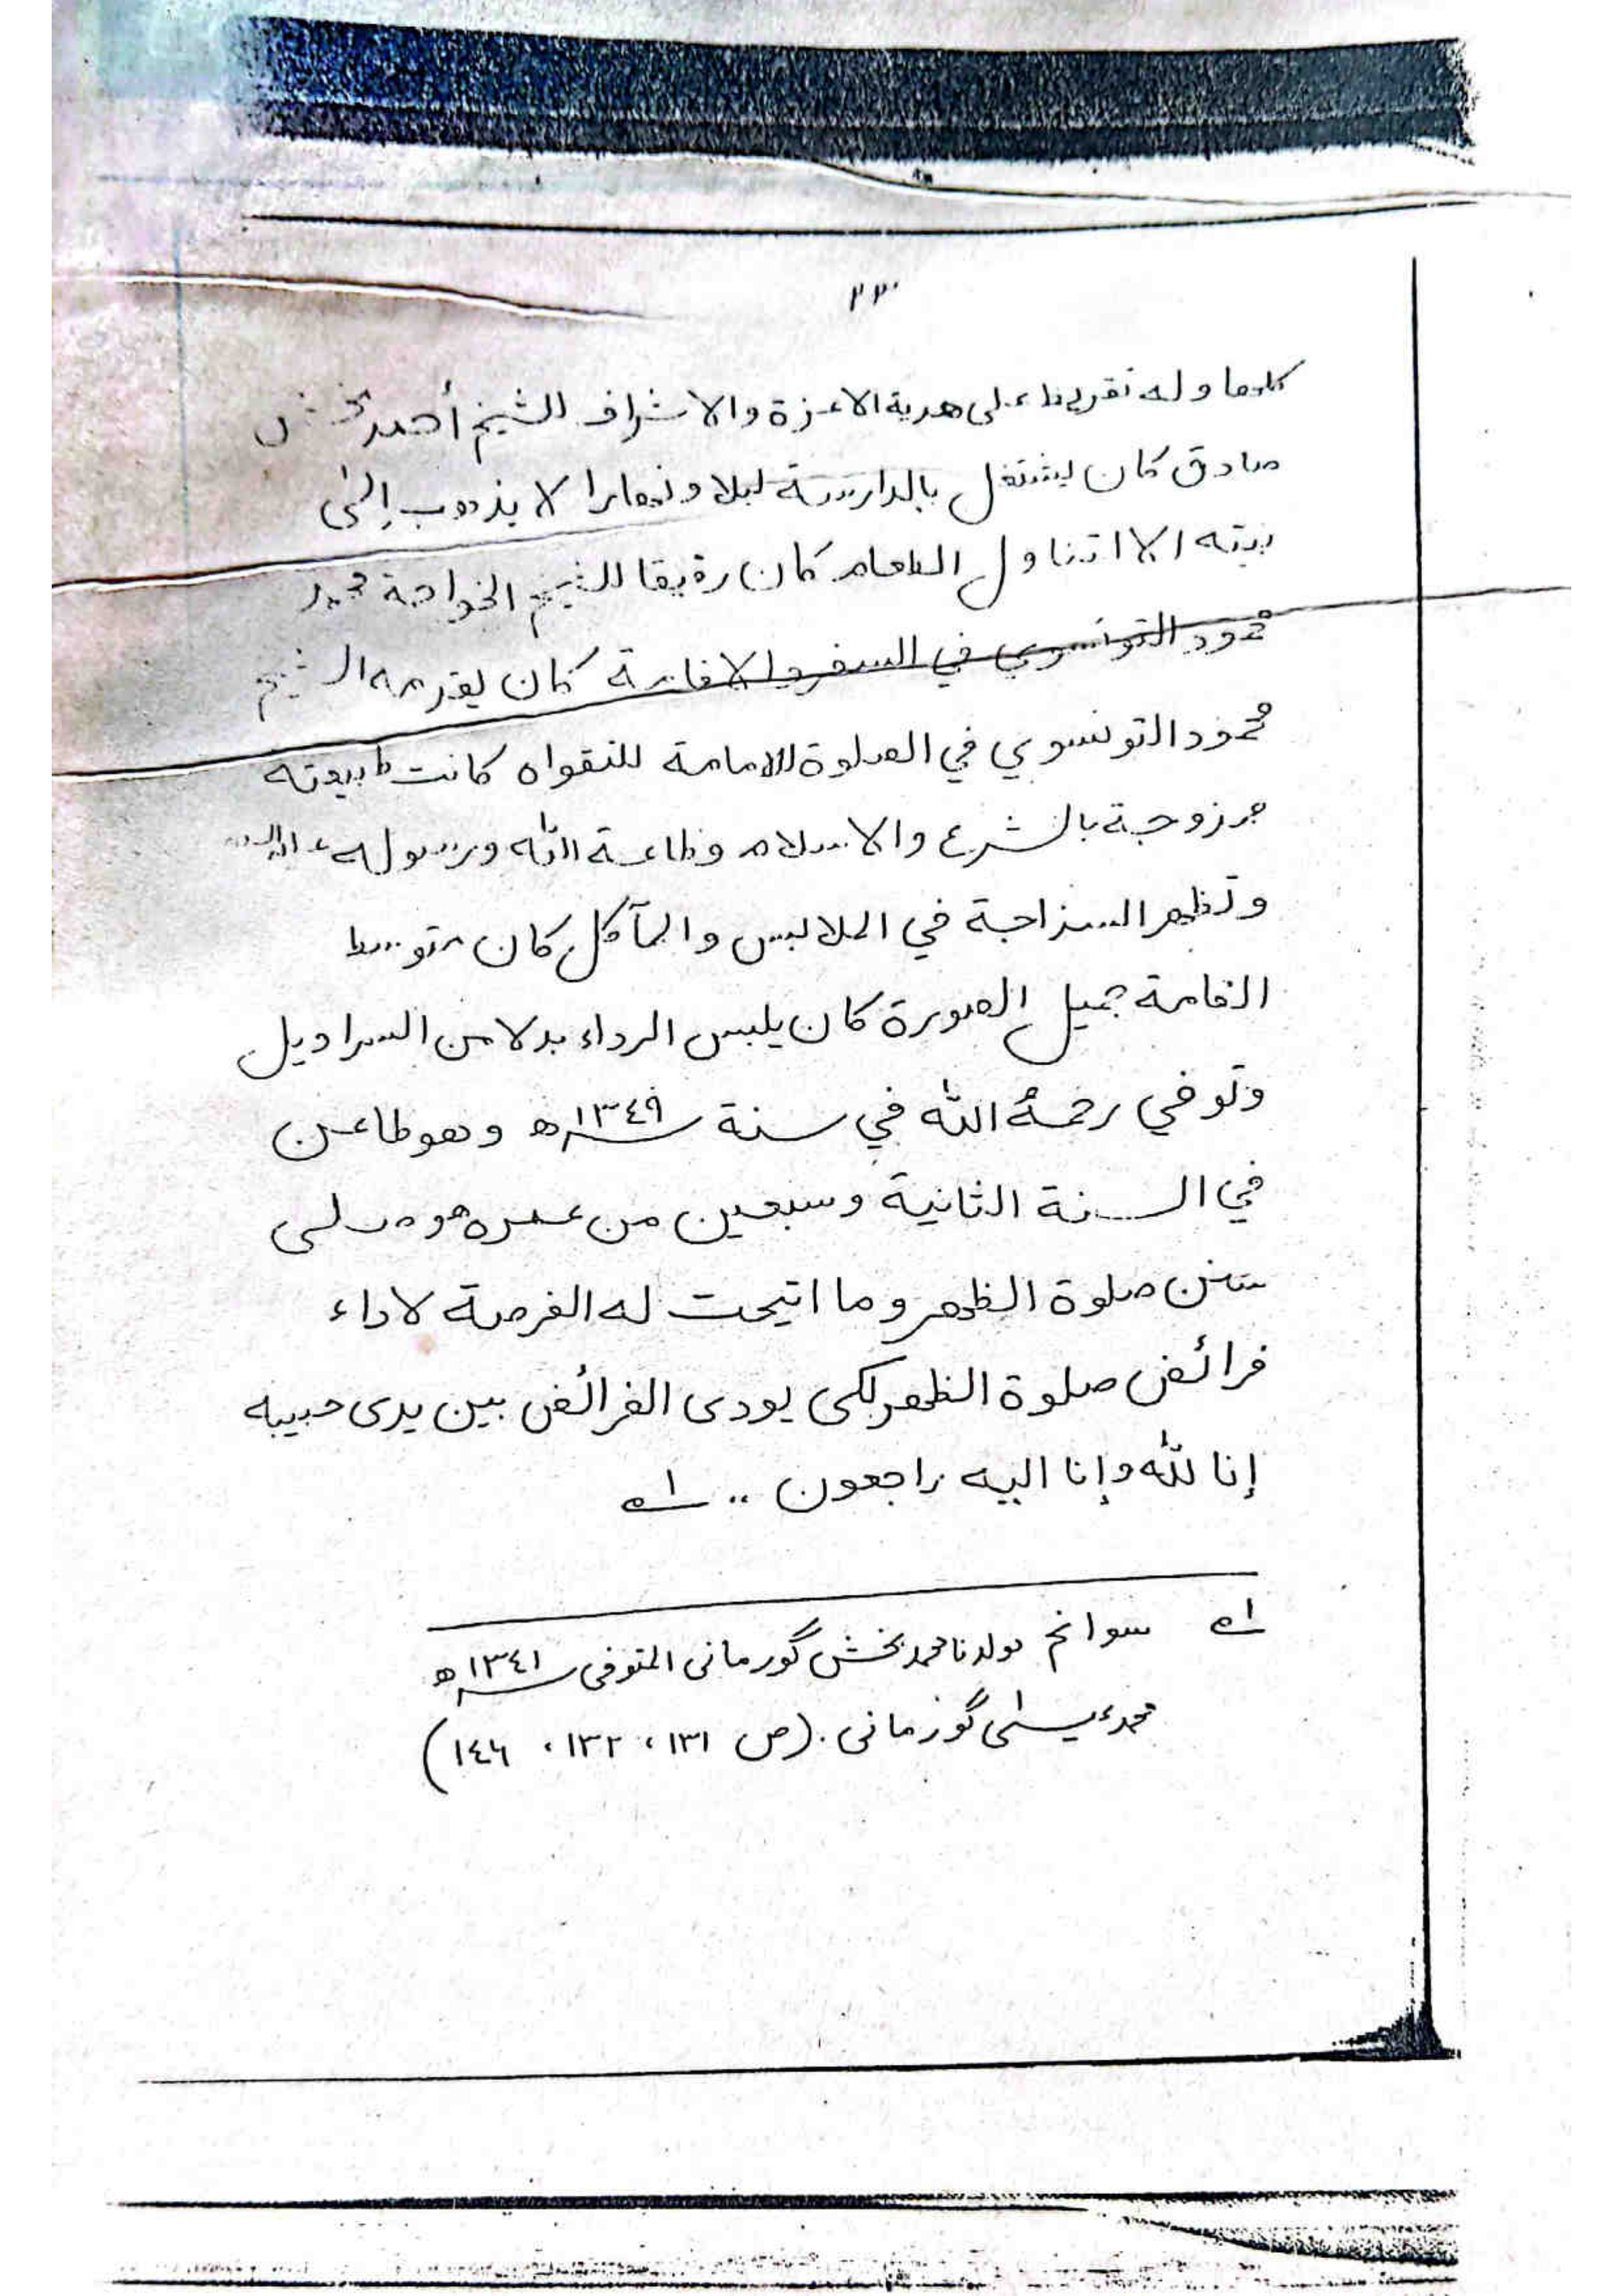 ٢٣٠
كلاهما وله تقريظا على هدية الاعزة والاشراف للشيخ أحمد بخش
صادق كان يشتغل بالدارسة ليلا ونهارا لا يذهب إلى
بيته الا اتناول الطعام كان رفيقا للشيخ الخواجة محمد
محمود التونسوي في السفر والاقامة كان يقدمه الشيخ
محمود التونسوي في الصلوة للامامة للتقواه كانت طبيعته
مزوجة بالشرع والاسلام وطاعة الله ورسوله
وتظهر السزاجة في الملابس والمآكل كان متوسط
القامة جميل الصورة كان يلبس الرداء بدلا من السراويل
وتوفي رحمه الله في سنة ١٣٤٩ھ وهو طاعن
في السنة الثانية وسبعين من عمره هو صلى
سنن صلوة الظهر وما اتيحت له الفرصة لاداء
فرائض صلوة الظهر لكى يودى الفرائض بين يدى حبيبه
إنا لله وإنا اليه راجعون .. اه
اه سوانح مولانا محمد بخش گورمانى المتوفى ١٣٤١ھ
محمد عيسى گورمانى . (ص ١٣١ ، ١٣٢ ، ١٤٦)